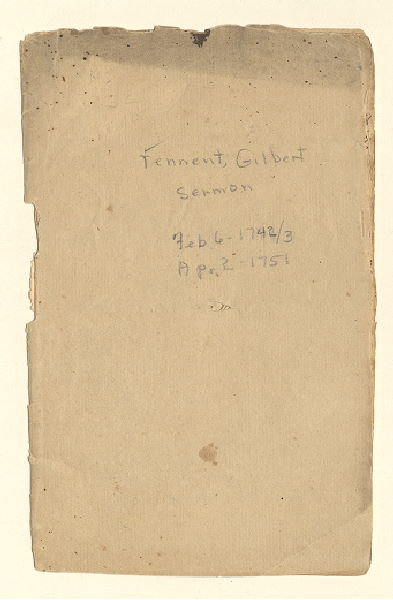 Tennent, Gilbert
Sermon
Feb. 6 - 1742/3
Apr. 2 - 1751